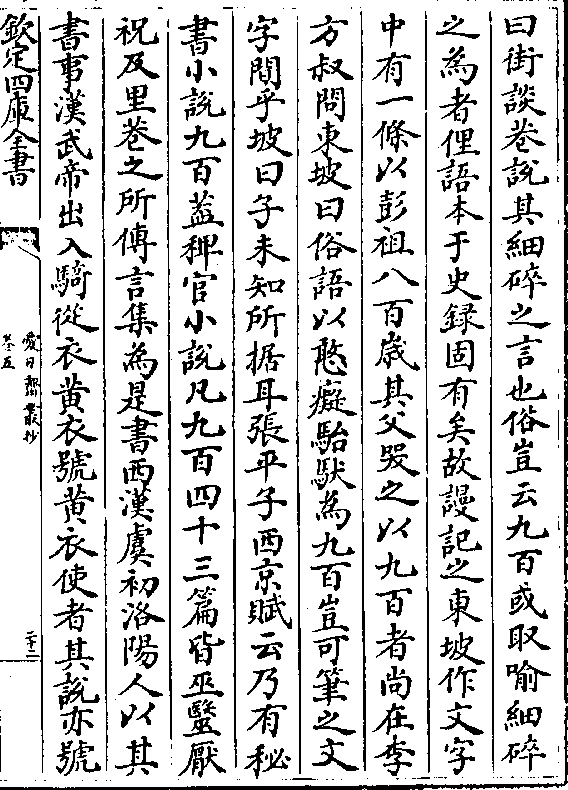 曰街談巷說其細碎之言也俗豈云九百或取喻細碎
之為者俚語本于史録固有矣故謾記之東坡作文字
中有一條以彭祖八百歳其父哭之以九百者尚在李
方叔問東坡曰俗語以憨癡駘騃為九百豈可筆之文
字間乎坡曰子未知所据耳張平子西京賦云乃有秘
書小說九百蓋稗官小說凡九百四十三篇皆巫醫厭
祝及里巷之所傳言集為是書西漢虞初洛陽人以其
書事漢武帝出入騎從衣黄衣號黄衣使者其說亦號
欽定四庫全書
愛日齋叢抄
卷五
二十二